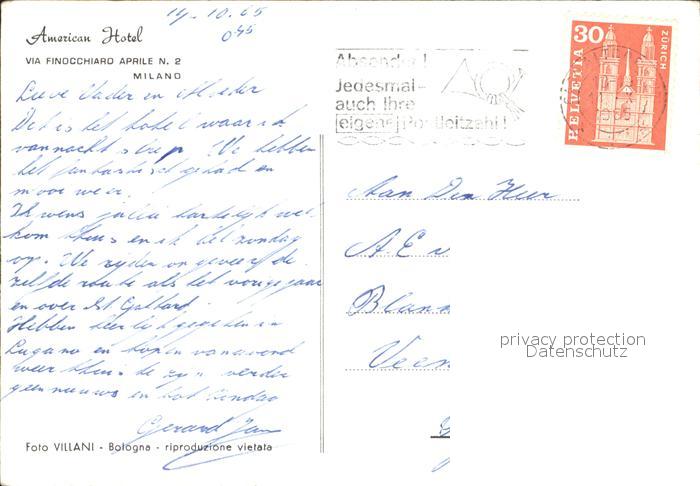 14-10-65
American Hotel
VIA FINOCCHIARO APRILE N. 2
MILANO
Lieve Vader en Moeder
Dit is het hotel waar ik
vannacht sliep. We hebben
het fantastisch gehad en
mooi weer.
Ik wens jullie hartelijk wel
kom thuis en ik bel zondag
op. We rijden ongeveer de
zelfde route als het vorige jaar
en over St Gotthard.
Hebben heerlijk gegeten in
Lugano en hopen vanavond
weer thuis te zijn verder
geen nieuws en tot zondag
Gerard Jan
Foto VILLANI - Bologna - riproduzione vietata
Absender!
Jedesmal-
auch Ihre
eigene Postleitzahl!
30
HELVETIA
ZÜRICH
Aan Den Heer
A.E v
Blann
Veen
privacy protection
Datenschutz